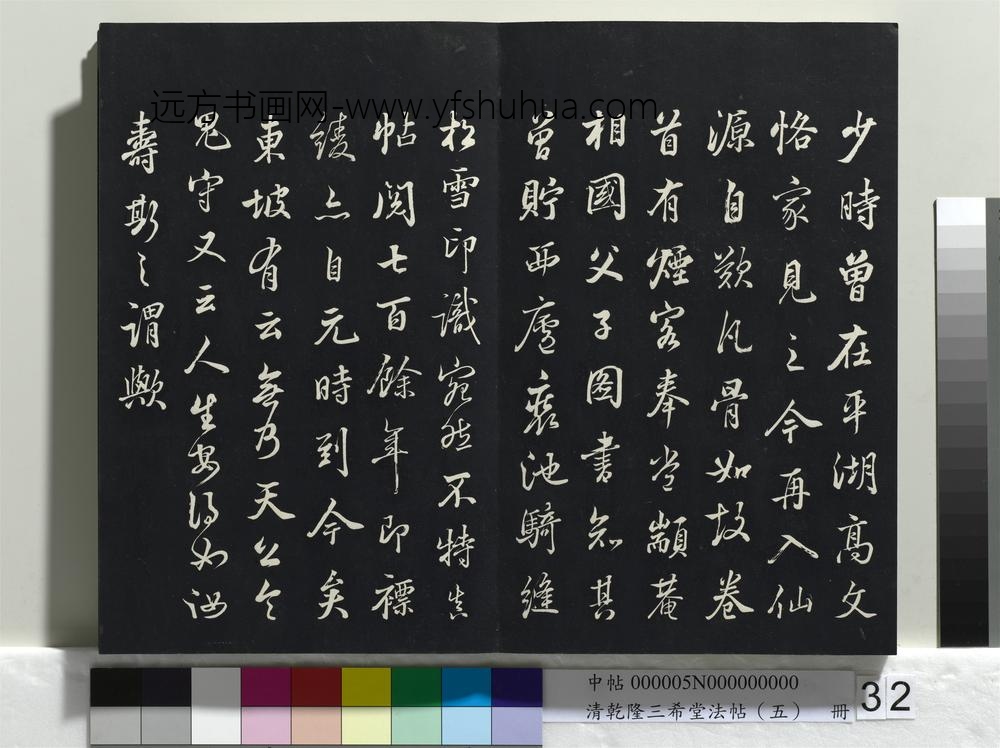 少時曾在平湖高文
恪家見之今再入仙
源自歎凡骨如故卷
首有煙客奉常顓菴
相國父子圖書知其
曾貯西廬裹池騎縫
松雪印識宛然不特真
帖閱七百餘年即褾
綾亦自元時到今矣
東坡有云無乃天公令
鬼守又云人生安得如汝
壽斯之謂歟
远方书画网-www.yfshuhua.com
中帖 000005N000000000
清乾隆三希堂法帖（五） 冊
32